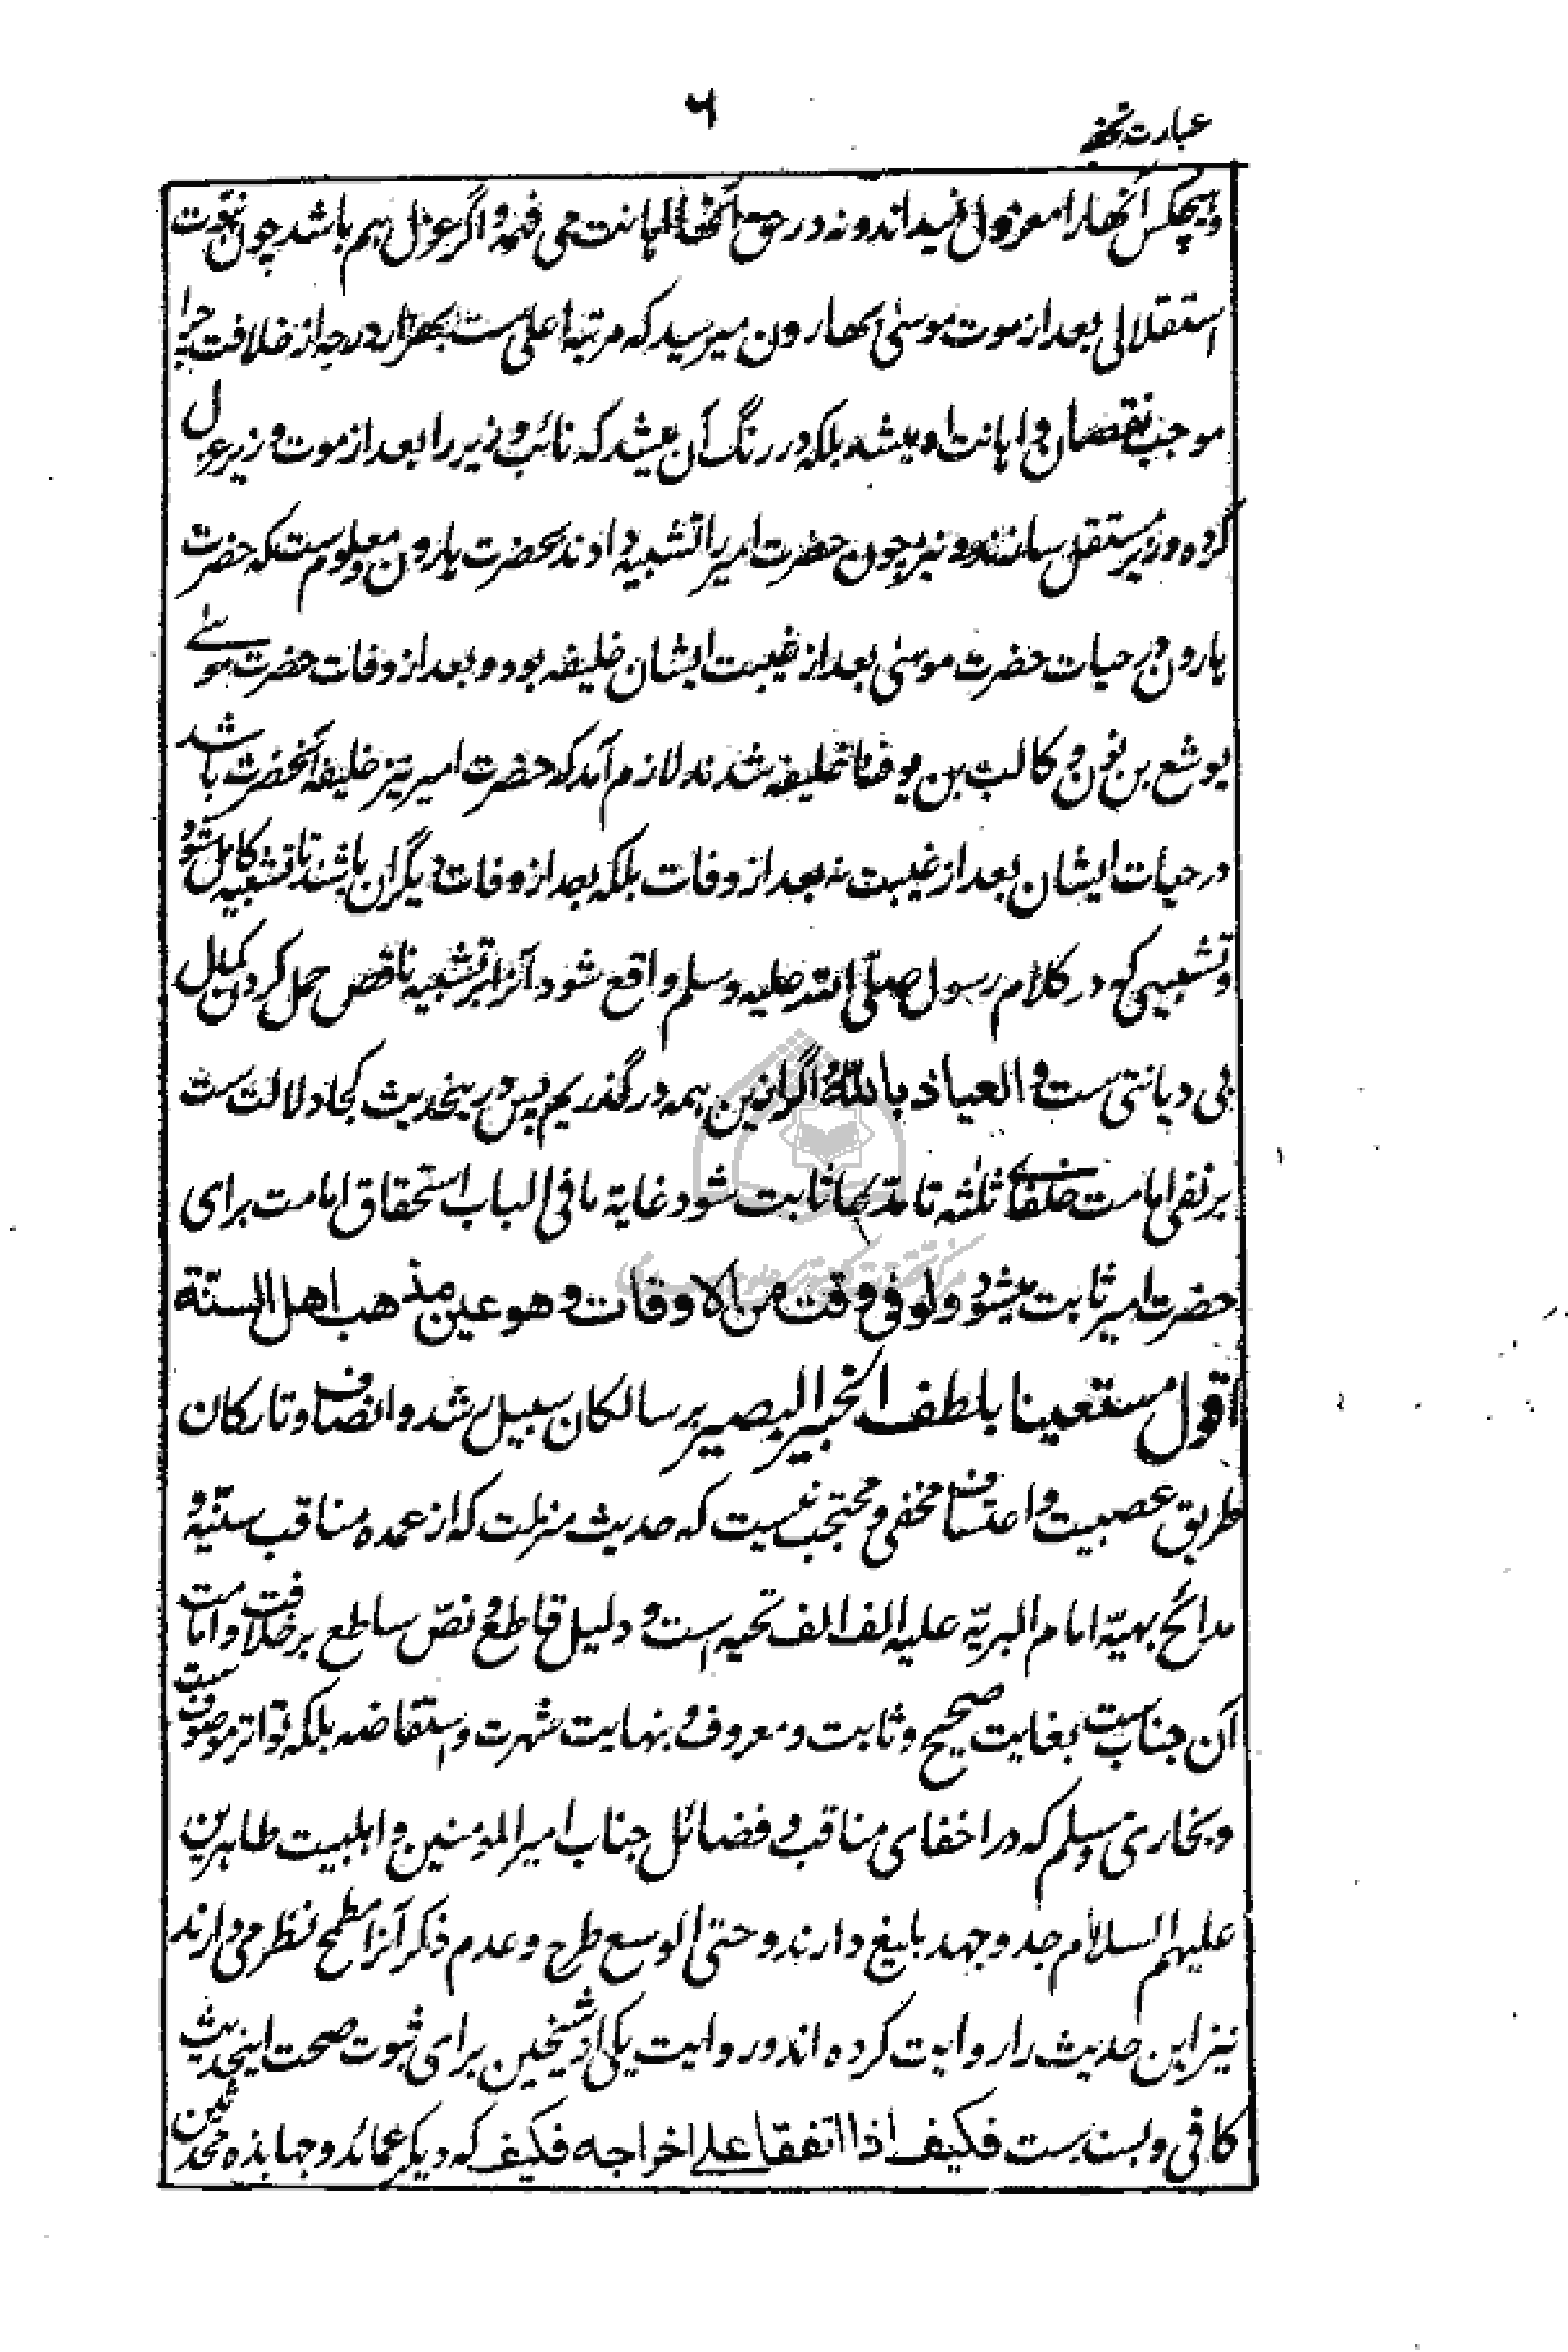 ۶
عبارت تحفه
و هیچکس آنها را معزول نمیداند و نه در حق آنها اهانت می فهمد و اگر عزل هم باشد چون نبوت
استقلالی بعد از موت موسی بهارون میرسید که مرتبه اعلی ست بهزار درجه از خلافت چرا
موجب نقصان و اهانت او میشد بلکه در رنگ آن میشد که نائب وزیر را بعد از موت وزیر عزل
کرده وزیر مستقل سازند و نیز چون حضرت امیر را تشبیه دادند بحضرت هارون و معلوم ست که حضرت
هارون در حیات حضرت موسی بعد از غیبت ایشان خلیفه بود و بعد از وفات حضرت موسے
یوشع بن نون و کالب بن یوفنا خلیفه شدند لازم آمد که حضرت امیر نیز خلیفه آنحضرت باشد
در حیات ایشان بعد از غیبت نه بعد از وفات بلکه بعد از وفات دیگران باشند تا تشبیه کامل شود
و تشبیهی که در کلام رسول صلّی الله علیه وسلم واقع شود آنرا بر تشبیه ناقص حمل کردن کمال
بی دیانتی ست و العیاذ بالله و اگر ازین همه درگذریم پس درینحدیث کجا دلالت ست
بر نفی امامت خلفاے ثلثه تا مدّعا ثابت شود غایة ما فی الباب استحقاق امامت برای
حضرت امیر ثابت میشود و لو فی وقت من الاوقات و هو عین مذهب اهل السنّة
اقول مستعینا بلطف الخبیر البصیر بر سالکان سبیل رشد و انصاف و تارکان
طریق عصبیت و اعتساف مخفی و محتجب نیست که حدیث منزلت که از عمده مناقب سنیّه و
مدائح بهیّه امام البریّه علیه الف الف تحیه است و دلیل قاطع و نصّ ساطع بر خلافت و امامت
آن جناب ست بغایت صحیح و ثابت و معروف و بنهایت شهرت و استفاضه بلکه تواتر موصوف ست
و بخاری و مسلم که در اخفای مناقب و فضائل جناب امیر المؤمنین و اهلبیت طاهرین
علیهم السلام جد و جهد بلیغ دارند و حتی الوسع طرح و عدم ذکر آنرا مطمح نظر می دارند
نیز این حدیث را روایت کرده اند و روایت یکی از شیخین برای ثبوت صحت اینحدیث
کافی و بسند ست فکیف اذا اتفقا علے اخراجه فکیف که دیگر عمائد و جهابذه محدثین